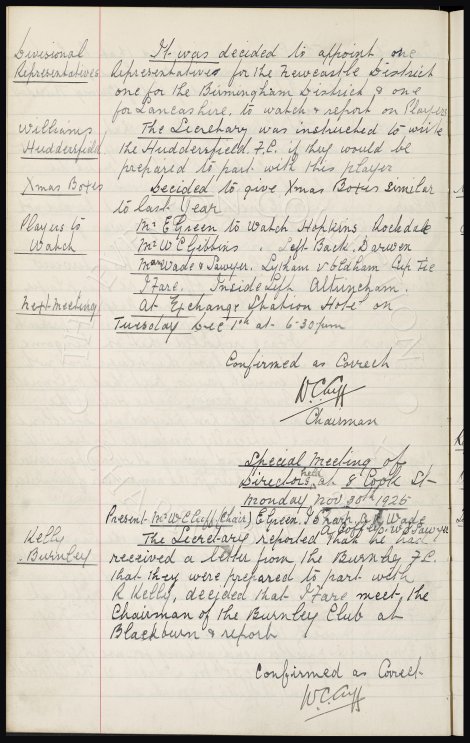 Divisional Representatives
It was decided to appoint one
Representatives for the Newcastle District
one for the Birmingham District & one
for Lancashire, to watch & report on Players
Williams Huddersfield
The Secretary was instructed to write
the Huddersfield F.C. if they would be
prepared to part with this player
Xmas Boxes
Decided to give Xmas Boxes similar
to last year
Players to Watch
Mr E Green to watch Hopkins. Rochdale
Mr W C Gibbins . Left Back. Darwen
Wade & Sawyer. Lytham v Oldham Cup Tie
J Fare. Inside Left Altrincham.
Next meeting
At Exchange Station Hotel on
Tuesday Dec 1st at 6-30 pm
Confirmed as Correct
W.C. Cuff
Chairman
Special Meeting of
Directors held at 8 Cook St
Monday Nov 30th 1925
Present Mr W C Cuff (Chair) E Green J Sharp A R Wade
W J Sawyer
Kells Burnley
The Secretary reported that he had
received a letter from the Burnley F.C.
that they were prepared to part with
R Kells, decided that J Fare meet, the
Chairman of the Burnley Club at
Blackburn & report
Confirmed as Correct
W.C. Cuff